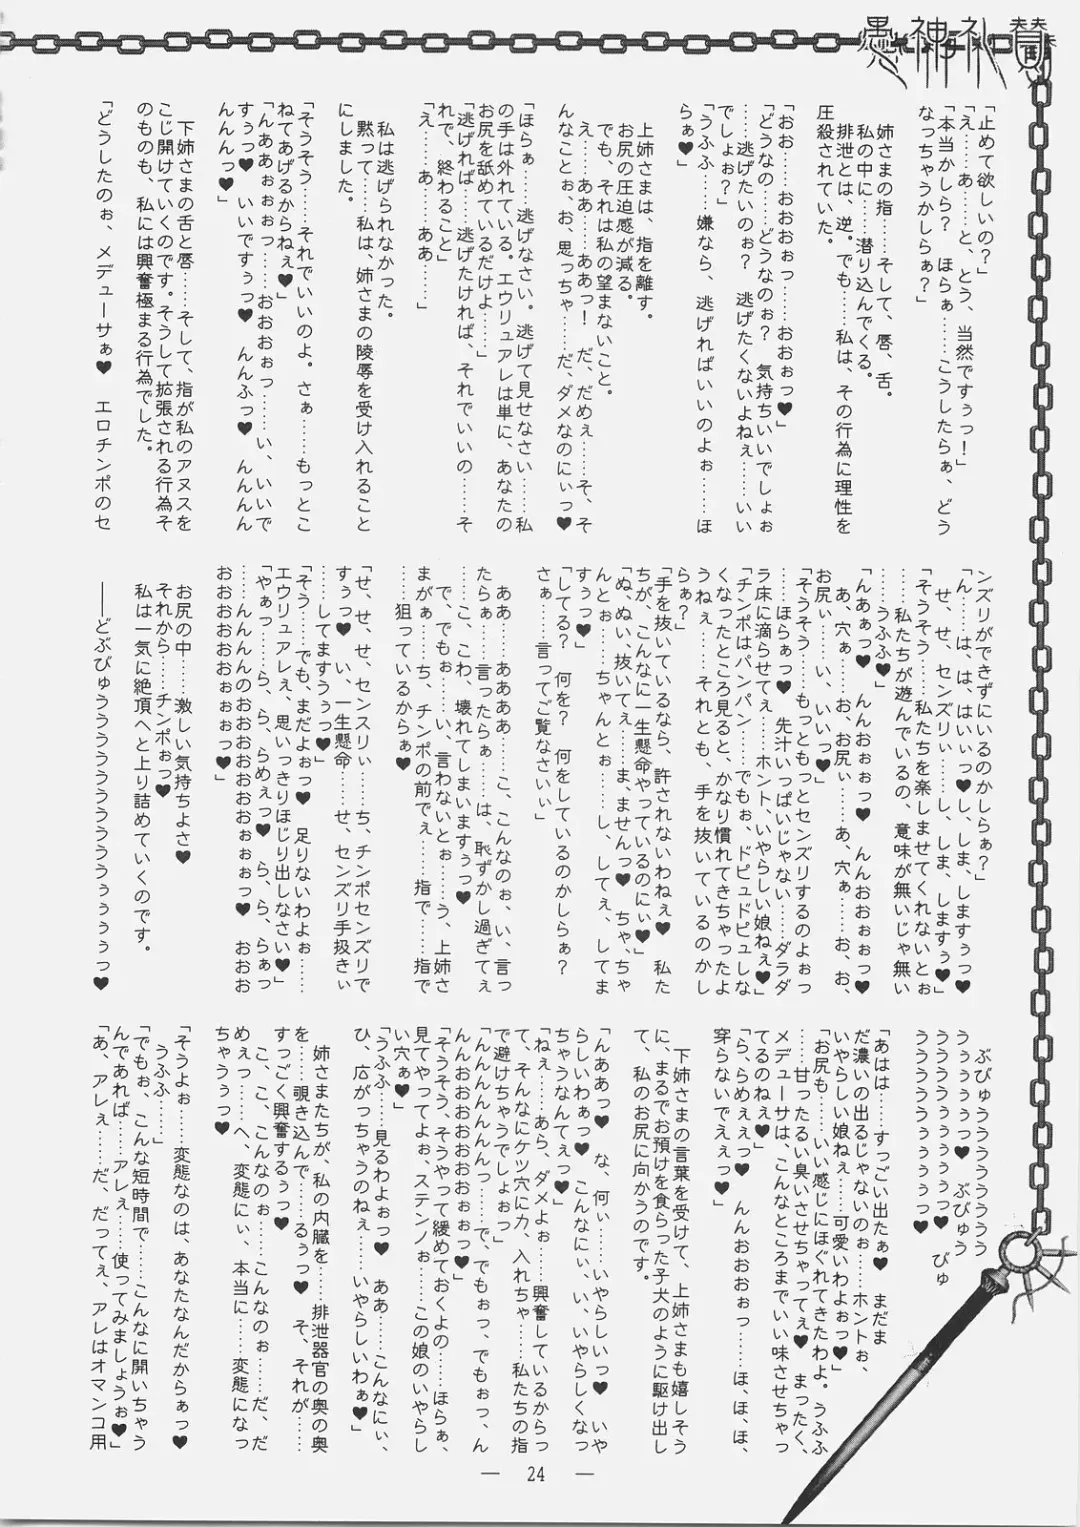 愚神礼賛
「止めて欲しいの？」
「え……あ……と、とう、当然ですぅっ！」
「本当かしら？　ほらぁ……こうしたらぁ、どう
なっちゃうかしらぁ？」
姉さまの指……そして、唇、舌。
私の中に……潜り込んでくる。
排泄とは、逆。でも……私は、その行為に理性を
圧殺されていた。
「おお……おおおぉっ……おおぉっ♥」
「どうなの……どうなのぉ？　気持ちいいでしょぉ
……逃げたいのぉ？　逃げたくないよねぇ……いい
でしょぉ？」
「うふふ……嫌なら、逃げればいいのよぉ……ほ
らぁ♥」
上姉さまは、指を離す。
お尻の圧迫感が減る。
でも、それは私の望まないこと。
え……ああ……ああっ！　だ、だめぇ……そ、そ
んなことぉ、お、思っちゃ……だ、ダメなのにぃっ♥
「ほらぁ……逃げなさい。逃げて見せなさい……私
の手は外れている。エウリュアレは単に、あなたの
お尻を舐めているだけよ……」
「逃げれば……逃げたければ、それでいいの……そ
れで、終わること」
「え……あ……ああ……」
私は逃げられなかった。
黙って……私は、姉さまの陵辱を受け入れること
にしました。
「そうそう……それでいいのよ。さぁ……もっとこ
ねてあげるからねぇ♥」
「んああぉぉぉっ……おおおぉっ……い、いいで
すぅっ♥　いいですぅっ♥　んんふっ♥　んんんん
んんんっ♥」
下姉さまの舌と唇……そして、指が私のアヌスを
こじ開けていくのです。そうして拡張される行為そ
のものも、私には興奮極まる行為でした。
「どうしたのぉ、メデューサぁ♥　エロチンポのセ
ンズリができずにいるのかしらぁ？」
「ん……は、は、はいぃっ♥し、しま、しますぅっ♥
せ、せ、センズリぃ……し、しま、しますぅ♥」
「そうそう……私たちを楽しませてくれないとぉ
……私たちが遊んでいるの、意味が無いじゃ無い
……うふふ♥」
「んあぁっ♥　んんおぉぉっ♥　んんおおぉぉっ♥
あ、穴ぁ……お、お尻ぃ……あ、穴ぁ……お、お、
お尻ぃ……い、いいっ♥」
「そうそう……もっともっとセンズリするのよぉっ
……ほらぁっ♥　先汁いっぱいじゃない……ダラダ
ラ床に滴らせてぇ……ホント、いやらしい娘ねぇ♥」
「チンポはパンパン……でもぉ、ドピュドピュしな
くなったところ見ると、かなり慣れてきちゃったよ
うねぇ……それとも、手を抜いているのかし
らぁ？」
「手を抜いているなら、許されないわねぇ♥　私た
ちが、こんなに一生懸命やっているのにぃ♥」
「ぬ、ぬい、抜いてぇ……ま、ませんっ♥　ちゃ、ちゃ
んとぉ……ちゃんとぉ……し、してぇ、してま
すぅっ♥」
「してる？　何を？　何をしているのかしらぁ？
さぁ……言ってご覧なさいぃ」
ああ……ああああ……こ、こんなのぉ、い、言っ
たらぁ……言ったらぁ……は、恥ずかし過ぎてぇ
……こ、こわ、壊れてしまいますぅっ♥
で、でもぉ……い、言わないとぉ……う、上姉さ
まがぁ……ち、チンポの前でぇ……指で……指で
……狙っているからぁ♥
「せ、せ、せ、センスリぃ……ち、チンポセンズリで
すぅっ♥　い、い、一生懸命……せ、センズリ手扱きぃ
……してますうぅっ♥」
「そう……でも、まだよぉっ♥　足りないわよぉ……
エウリュアレぇ、思いっきりほじり出しなさい♥」
「やぁっ……ら、ら、らめぇっ♥　ら、ら、らぁっ
……んんんんのおおおおおおおぉぉぉっ♥　おおお
おおおおおおぉぉぉっ♥」
お尻の中……激しい気持ちよさ♥
それから……チンポぉっ♥
私は一気に絶頂へと上り詰めていくのです。
――どぷびゅうううううううううううぅぅぅっ♥
ぶびゅううううううううう
うぅぅぅぅっ♥　ぶびゅう
うううううぅぅぅぅっ♥　びゅ
うううううぅぅぅぅっ♥
「あはは……すっごい出たぁ♥　まだま
だ濃いの出るじゃないのぉ……ホントぉ、
いやらしい娘ねぇ……可愛いわよぉっ♥」
「お尻も……いい感じにほぐれてきたわよ。うふふ
……甘ったるい臭いさせちゃってぇ♥　まったく、
メデューサは、こんなところまでいい味させちゃっ
てるのねぇ♥」
「ら、らめぇぇっ♥　んんおおおぉっ……ほ、ほ、ほ、
穿らないでえぇっ♥」
下姉さまの言葉を受けて、上姉さまも嬉しそう
に、まるでお預けを食らった子犬のように駆け出し
て、私のお尻に向かうのです。
「んああっ♥　な、何ぃ……いやらしいっ♥　いや
らしいわぁっ♥　こんなにぃ、い、いやらしくなっ
ちゃうなんてぇっ♥」
「ねぇ……あら、ダメよぉ……興奮しているからっ
て、そんなにケツ穴に力、入れちゃ……私たちの指
で避けちゃうでしょぉっ♥」
「んんんんんんっ……で、でもぉっ、でもぉっ、ん
んんおおおおおおおぉぉっ♥」
「そうそう、そうやって緩めておくよの……ほらぁ、
見てやってよぉ、ステンノぉ……この娘のいやらし
い穴ぁ♥」
「うふふ……見るわよぉっ♥　ああ……こんなにぃ、
ひ、広がっちゃうのねぇ……いやらしいわぁ♥」
姉さまたちが、私の内臓を……排泄器官の奥の奥
を……覗き込んで……るぅっ♥　そ、それが……
すっごく興奮するぅっ♥
こ、こ、こんなのぉ……こんなのぉ……だ、だ
めぇっ……へ、変態にぃ、本当に……変態になっ
ちゃうぅっ♥
「そうよぉ……変態なのは、あなたなんだからぁっ♥
うふふ……」
「でもぉ、こんな短時間で……こんなに開いちゃう
んであれば……アレぇ……使ってみましょうぉ♥」
「あ、アレぇ……だ、だってぇ、アレはオマンコ用
― 24 ―